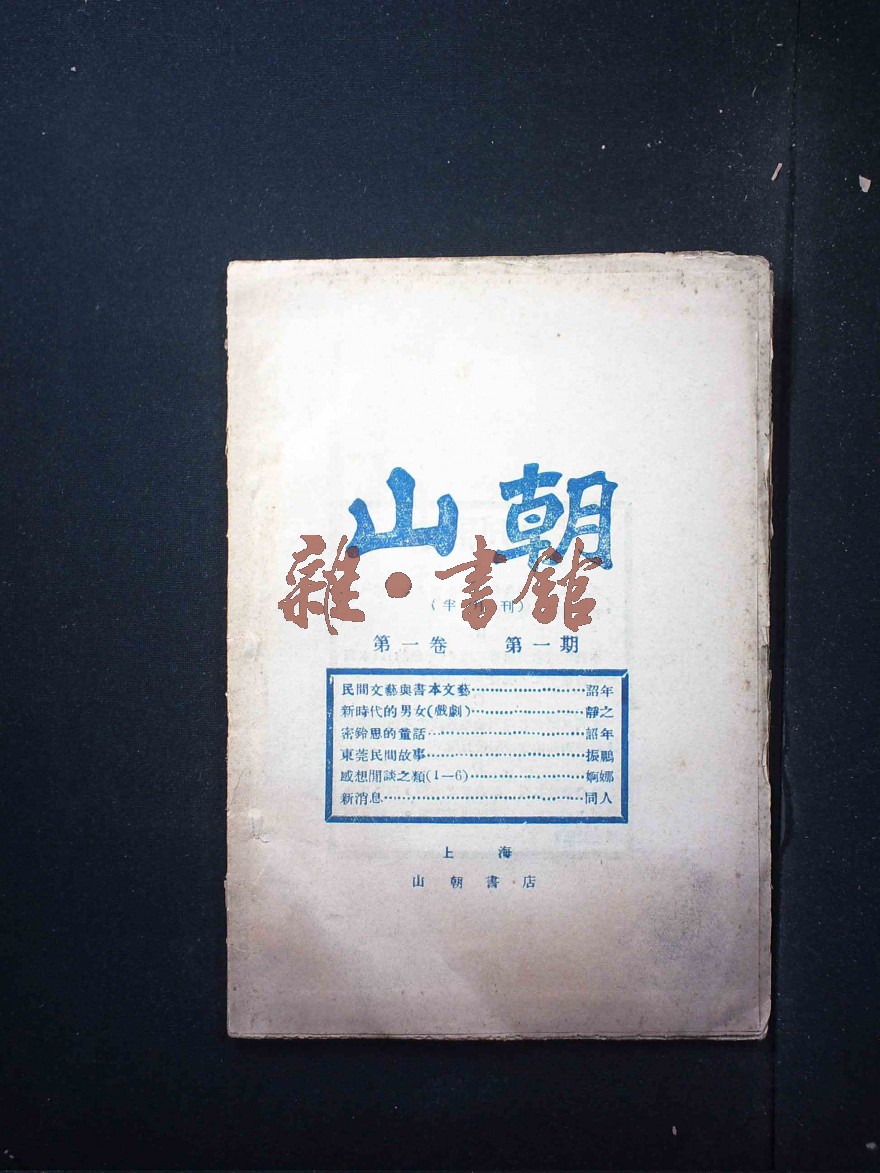 山朝
雜·書館
（半月刊）
第一卷 第一期
民間文藝與書本文藝……………………韶年
新時代的男女(戲劇)……………………靜之
密鈴思的童話……………………韶年
東莞民間故事……………………振鵬
感想閒談之類(1—6)……………………婀娜
新消息……………………同人
上海
山朝書店